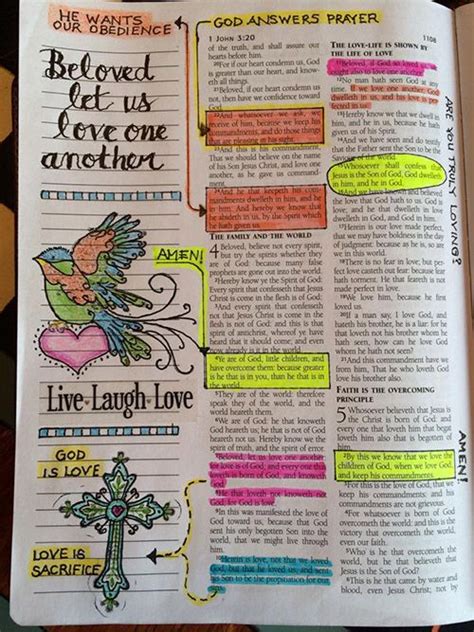 HE WANTS
OUR OBEDIENCE
Beloved
let us
love one
another
AMEN!
Live·Laugh·Love
GOD
IS LOVE
LOVE IS
SACRIFICE
GOD ANSWERS PRAYER
1 JOHN 3:20
of the truth, and shall assure our
hearts before him.
20For if our heart condemn us, God
is greater than our heart, and know-
eth all things.
21Beloved, if our heart condemn us
not, then have we confidence toward
God.
22And whatsoever we ask, we
receive of him, because we keep his
commandments, and do those things
that are pleasing in his sight.
23And this is his commandment,
That we should believe on the name
of his Son Jesus Christ, and love one
another, as he gave us command-
ment.
24And he that keepeth his com-
mandments dwelleth in him, and he
in him. And hereby we know that
he abideth in us, by the Spirit which
he hath given us.
THE FAMILY AND THE WORLD
4 Beloved, believe not every spirit,
but try the spirits whether they
are of God: because many false
prophets are gone out into the world.
2Hereby know ye the Spirit of God:
Every spirit that confesseth that Jesus
Christ is come in the flesh is of God:
3And every spirit that confesseth
not that Jesus Christ is come in the
flesh is not of God: and this is that
spirit of antichrist, whereof ye have
heard that it should come; and even
now already is it in the world.
4Ye are of God, little children, and
have overcome them: because greater
is he that is in you, than he that is in
the world.
5They are of the world: therefore
speak they of the world, and the
world heareth them.
6We are of God: he that knoweth
God heareth us; he that is not of God
heareth not us. Hereby know we the
spirit of truth, and the spirit of error.
7Beloved, let us love one another:
for love is of God; and every one that
loveth is born of God, and knoweth
God.
8He that loveth not knoweth not
God; for God is love.
9In this was manifested the love of
God toward us, because that God
sent his only begotten Son into the
world, that we might live through
him.
10Herein is love, not that we loved
God, but that he loved us, and sent
his Son to be the propitiation for our
sins.
1108
THE LOVE-LIFE IS SHOWN BY
THE LIFE OF LOVE
11Beloved, if God so loved us, we
ought also to love one another.
12No man hath seen God at any
time. If we love one another, God
dwelleth in us, and his love is per-
fected in us.
13Hereby know we that we dwell in
him, and he in us, because he hath
given us of his Spirit.
14And we have seen and do testify
that the Father sent the Son to be the
Saviour of the world.
15Whosoever shall confess that
Jesus is the Son of God, God dwelleth
in him, and he in God.
16And we have known and believed
the love that God hath to us. God is
love; and he that dwelleth in love
dwelleth in God, and God in him.
17Herein is our love made perfect,
that we may have boldness in the day
of judgment: because as he is, so are
we in this world.
18There is no fear in love; but per-
fect love casteth out fear: because fear
hath torment. He that feareth is not
made perfect in love.
19We love him, because he first
loved us.
20If a man say, I love God, and
hateth his brother, he is a liar: for he
that loveth not his brother whom he
hath seen, how can he love God
whom he hath not seen?
21And this commandment have we
from him, That he who loveth God
love his brother also.
FAITH IS THE OVERCOMING
PRINCIPLE
5 Whosoever believeth that Jesus is
the Christ is born of God: and
every one that loveth him that begat
loveth him also that is begotten of
him.
2By this we know that we love the
children of God, when we love God,
and keep his commandments.
3For this is the love of God, that we
keep his commandments: and his
commandments are not grievous.
4For whatsoever is born of God
overcometh the world: and this is the
victory that overcometh the world,
even our faith.
5Who is he that overcometh the
world, but he that believeth that
Jesus is the Son of God?
6This is he that came by water and
blood, even Jesus Christ; not by
ARE YOU TRULY LOVING?
AMEN!